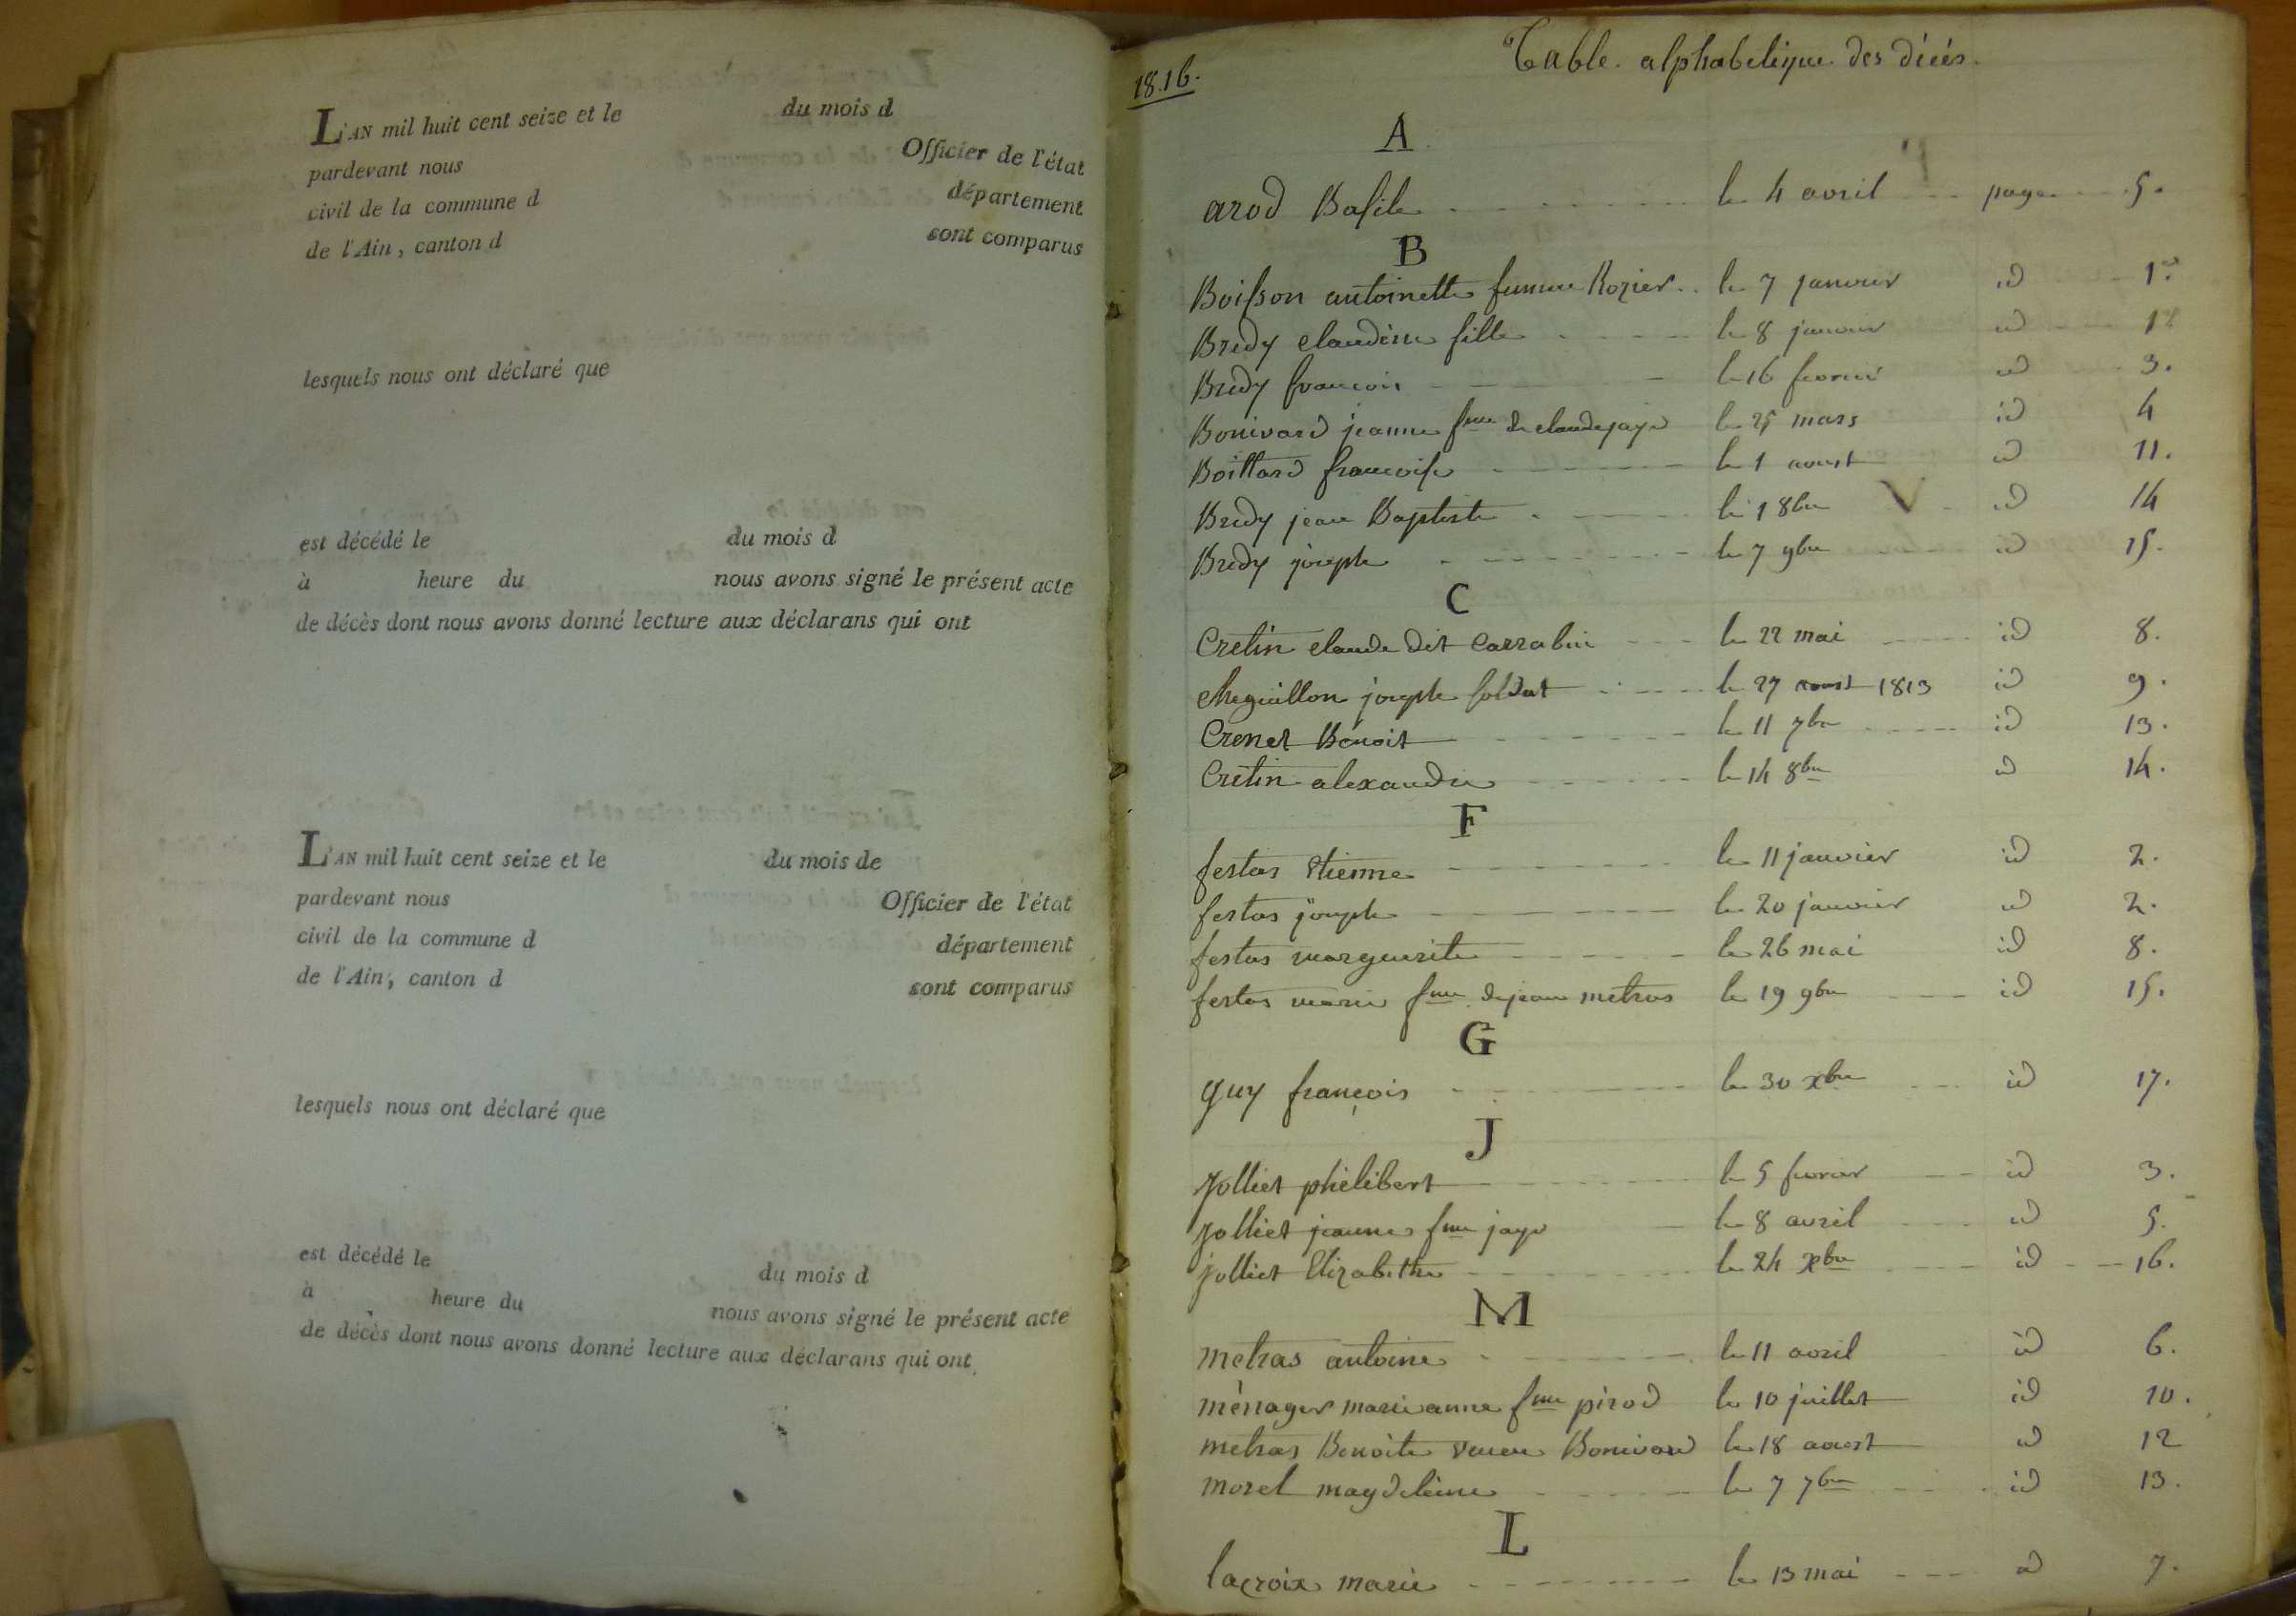 L'AN mil huit cent seize et le du mois d
pardevant nous Officier de l'état
civil de la commune d département
de l'Ain, canton d sont comparus
lesquels nous ont déclaré que
est décédé le du mois d
à heure du nous avons signé le présent acte
de décès dont nous avons donné lecture aux déclarans qui ont
L'AN mil huit cent seize et le du mois de
pardevant nous Officier de l'état
civil de la commune d département
de l'Ain, canton d sont comparus
lesquels nous ont déclaré que
est décédé le du mois d
à heure du nous avons signé le présent acte
de décès dont nous avons donné lecture aux déclarans qui ont
1816.
Table alphabetique des décés.
A
arod Basile le 4 avril page 5.
B
Boisson antoinette femme Rozier le 7 janvier id 1er
Bredy claudine fille le 8 janvier id 1er
Bredy francois le 16 fevrier id 3.
Bonivard jeanne fme de claude jayr le 25 mars id 4
Boittard francoise le 1 aoust id 11.
Bredy jean Baptiste le 1 8bre id 14
Bredy joseph le 7 9bre id 15.
C
Cretin claude dit Carrabin le 22 mai id 8.
cheguillon joseph soldat le 27 aoust 1813 id 9.
Crenet Benoit le 11 7bre id 13.
Cretin alexandre le 14 8bre id 14.
F
festas Etienne le 11 janvier id 2.
festas joseph le 20 janvier id 2.
festas marguerite le 26 mai id 8.
festas marie fme de jean metras le 19 9bre id 15.
G
guy françois le 30 xbre id 17.
J
Jolliet philibert le 5 fevrier id 3.
Jolliet jeanne fme jayr le 8 avril id 5.
jolliet Elizabethe le 24 xbre id 16.
M
metras antoine le 11 avril id 6.
ménager marie anne fme pirod le 10 juillet id 10.
metras Benoite veuve Bonivard le 18 aoust id 12
morel magdeleine le 7 7bre id 13.
L
lacroix marie le 13 mai id 7.